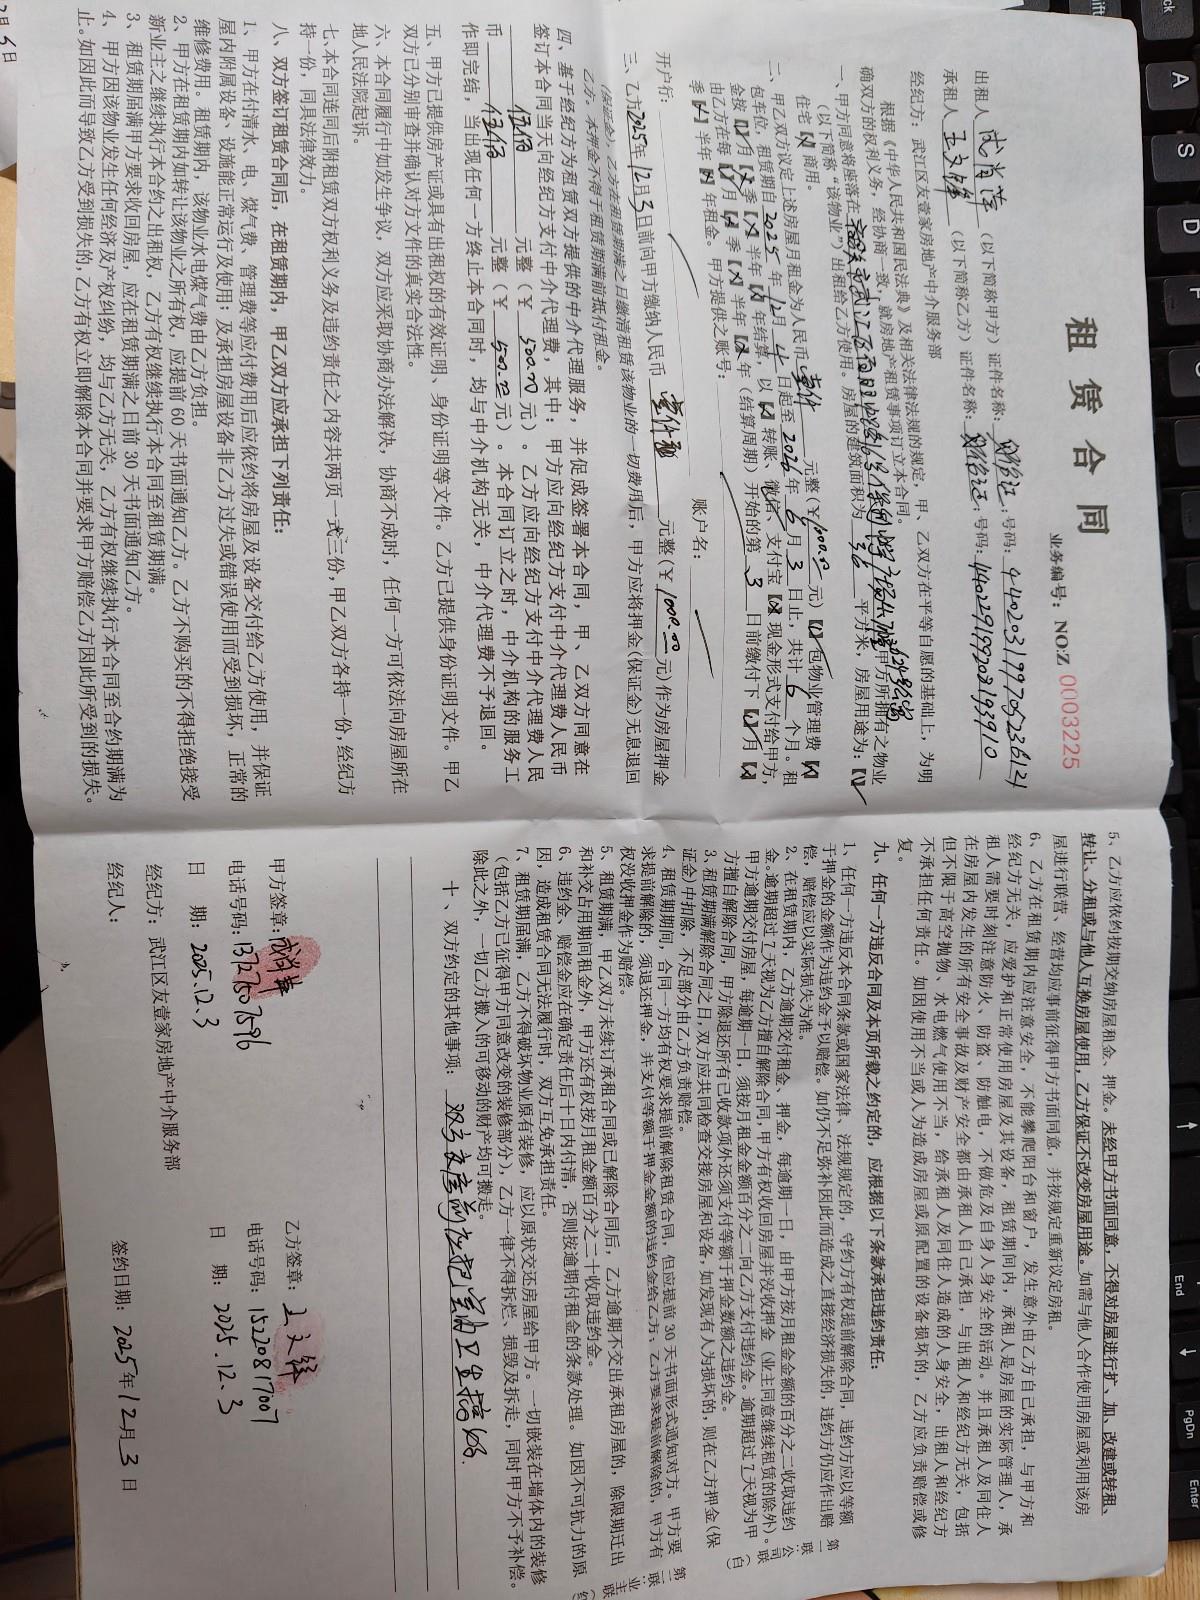 租 赁 合 同
业务编号：NO:Z 0003225
出租人 （以下简称甲方）证件名称：身份证；号码：440203199705236121
承租人 （以下简称乙方）证件名称：身份证；号码：440229199202193910
经纪方：武江区友壹家房地产中介服务部
根据《中华人民共和国民法典》及相关法律法规的规定，甲、乙双方在平等自愿的基础上，为明
确双方的权利义务，经协商一致，就房地产租赁事项订立本合同。
一、甲方同意将座落在 甲方所拥有之物业
（以下简称“该物业”）出租给乙方使用。房屋的建筑面积为 平方米；房屋用途为：【√】
住宅【 】商用。
二、甲乙双方议定上述房屋月租金为人民币壹仟 元整（￥1000.00元）【 】包物业管理费【 】
包车位，租赁期自2025年12月4日起至2026年6月3日止，共计6个月。租
金按【 】月【 】季【 】半年【 】年结算，以【 】转账、微信、支付宝【 】现金形式支付给甲方，
由乙方在每【 】月【 】季【 】半年【 】年（结算周期）开始的第3日前缴付下【 】月【 】
季【 】半年【 】年租金。甲方提供之账号：
开户行： 账户名：
三、乙方2025年12月3日前向甲方缴纳人民币 壹仟 元整（￥1000.00元）作为房屋押金
（保证金），乙方在租赁期满之日缴清租赁该物业的一切费用后，甲方应将押金（保证金）无息退回
乙方。本押金不得于租赁期满前抵付租金。
四、基于经纪方为租赁双方提供的中介代理服务，并促成签署本合同，甲、乙双方同意在
签订本合同当天向经纪方支付中介代理费，其中：甲方应向经纪方支付中介代理费人民币
伍佰 元整（￥500.00元）。乙方应向经纪方支付中介代理费人民
币 伍佰 元整（￥500.00元）。本合同订立之时，中介机构的服务工
作即完结，当出现任何一方终止本合同时，均与中介机构无关，中介代理费不予退回。
五、甲方已提供房产证或具有出租权的有效证明、身份证明等文件。乙方已提供身份证明文件。甲乙
双方已分别审查并确认对方文件的真实合法性。
六、本合同履行中如发生争议，双方应采取协商办法解决，协商不成时，任何一方可依法向房屋所在
地人民法院起诉。
七、本合同连同后附租赁双方权利义务及违约责任之内容共两页一式三份，甲乙双方各持一份，经纪方
持一份，同具法律效力。
八、双方签订租赁合同后，在租赁期内，甲乙双方应承担下列责任：
1、甲方在付清水、电、煤气费、管理费等应付费用后应依约将房屋及设备交付给乙方使用，并保证
屋内附属设备、设施能正常运行及使用；及承担房屋设备非乙方过失或错误使用而受到损坏，正常的
维修费用。租赁期内，该物业水电煤气费由乙方负担。
2、甲方在租赁期内如转让该物业之所有权，应提前60天书面通知乙方。乙方不购买的不得拒绝接受
新业主之继续执行本合约之出租权，乙方有权继续执行本合同至租赁期满。
3、租赁期届满甲方要求收回房屋，应在租赁期满之日前30天书面通知乙方。
4、甲方因该物业发生任何经济及产权纠纷，均与乙方无关，乙方有权继续执行本合同至合约期满为
止。如因此而导致乙方受到损失的，乙方有权立即解除本合同并要求甲方赔偿乙方因此所受到的损失。
5、乙方应依约按期交纳房屋租金、押金。未经甲方书面同意，不得对房屋进行扩、加、改建或转租、
转让、分租或与他人互换房屋使用，乙方保证不改变房屋用途。如需与他人合作使用房屋或利用该房
屋进行联营、经营均应事前征得甲方书面同意，并按规定重新议定房租。
6、乙方在租赁期内应注意安全，不能攀爬阳台和窗户，发生意外由乙方自己承担，与甲方和
经纪方无关，应爱护和正常使用房屋及其设备，租赁期间内，承租人是房屋的实际管理人，承
租人需要时刻注意防火、防盗、防触电，不做危及自身人身安全的活动。并且承租人及同住人
在房屋内发生的所有安全事故及财产安全都由承租人自己承担，与出租人和经纪方无关，包括
但不限于高空抛物、水电燃气使用不当，给承租人及同住人造成的人身安全，出租人和经纪方
不承担任何责任。如因使用不当或人为造成房屋或原配置的设备损坏的，乙方应负责赔偿或修
复。
九、任何一方违反合同及本页所载之约定的，应根据以下条款承担违约责任：
1、任何一方违反本合同条款或国家法律、法规规定的，守约方有权提前解除合同，违约方应以等额
于押金的金额作为违约金予以赔偿。如仍不足弥补因此而造成之直接经济损失的，违约方仍应作出赔
偿，赔偿应以实际损失为准。
2、在租赁期内，乙方逾期交付租金、押金，每逾期一日，由甲方按月租金金额的百分之二收取违约
金。逾期超过7天视为乙方擅自解除合同，甲方有权收回房屋并没收押金（业主同意继续租赁的除外）。
甲方逾期交付房屋，每逾期一日，须按月租金金额百分之二向乙方支付违约金。逾期超过7天视为甲
方擅自解除合同，甲方除退还所有已收款项外还须支付等额于押金数额之违约金。
3、租赁期满解除合同之日，双方应共同检查交接房屋和设备，如发现有人为损坏的，则在乙方押金（保
证金）中扣除，不足部分由乙方负责赔偿。
4、租赁期期间，合同一方均有权要求提前解除租赁合同，但应提前30天书面形式通知对方。甲方要
求提前解除的，须退还押金，并支付等额于押金金额的违约金给乙方，乙方要求提前解除的，甲方有
权没收押金作为赔偿。
5、租赁期满，甲乙双方未续订承租合同或已解除合同后，乙方逾期不交出承租房屋的，除限期迁出
和补交占用期间租金外，甲方还有权按月租金额百分之二十收取违约金。
6、违约金、赔偿金应在确定责任后十日内付清，否则按逾期付租金的条款处理。如因不可抗力的原
因，造成租赁合同无法履行时，双方互免承担责任。
7、租赁期届满，乙方不得破坏物业原有装修，应以原状交还房屋给甲方。一切嵌装在墙体内的装修
（包括乙方已征得甲方同意改变的装修部分），乙方一律不得拆烂、损毁及拆走，同时甲方不予补偿。
除此之外，一切乙方搬入的可移动的财产均可搬走。
第一联 公司联（白）
第二联 业主联
十、双方约定的其他事项：
甲方签章： 乙方签章：
电话号码：13727507596 电话号码：15220817007
日 期：2025.12.3 日 期：2025.12.3
经纪方：武江区友壹家房地产中介服务部
经纪人： 签约日期：2025年12月3日